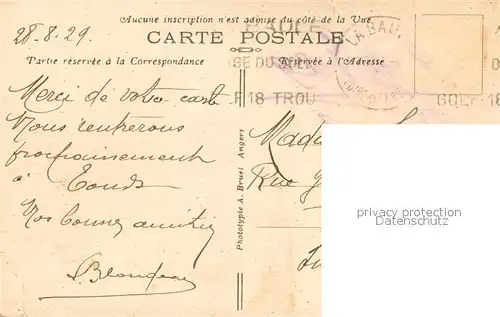 Aucune inscription n'est admise du côté de la Vue
28-8.29.
CARTE POSTALE
Partie réservée à la Correspondance
Réservée à l'Adresse
LA BAU
GE DU
F 18 TROU
GOLF 18
Merci de votre carte
Nous rentrerons
prochainement
à
Vos bonnes amitiés
Blondeau
Phototypie A. Bruel Angers
Mada
Rue
privacy protection
Datenschutz